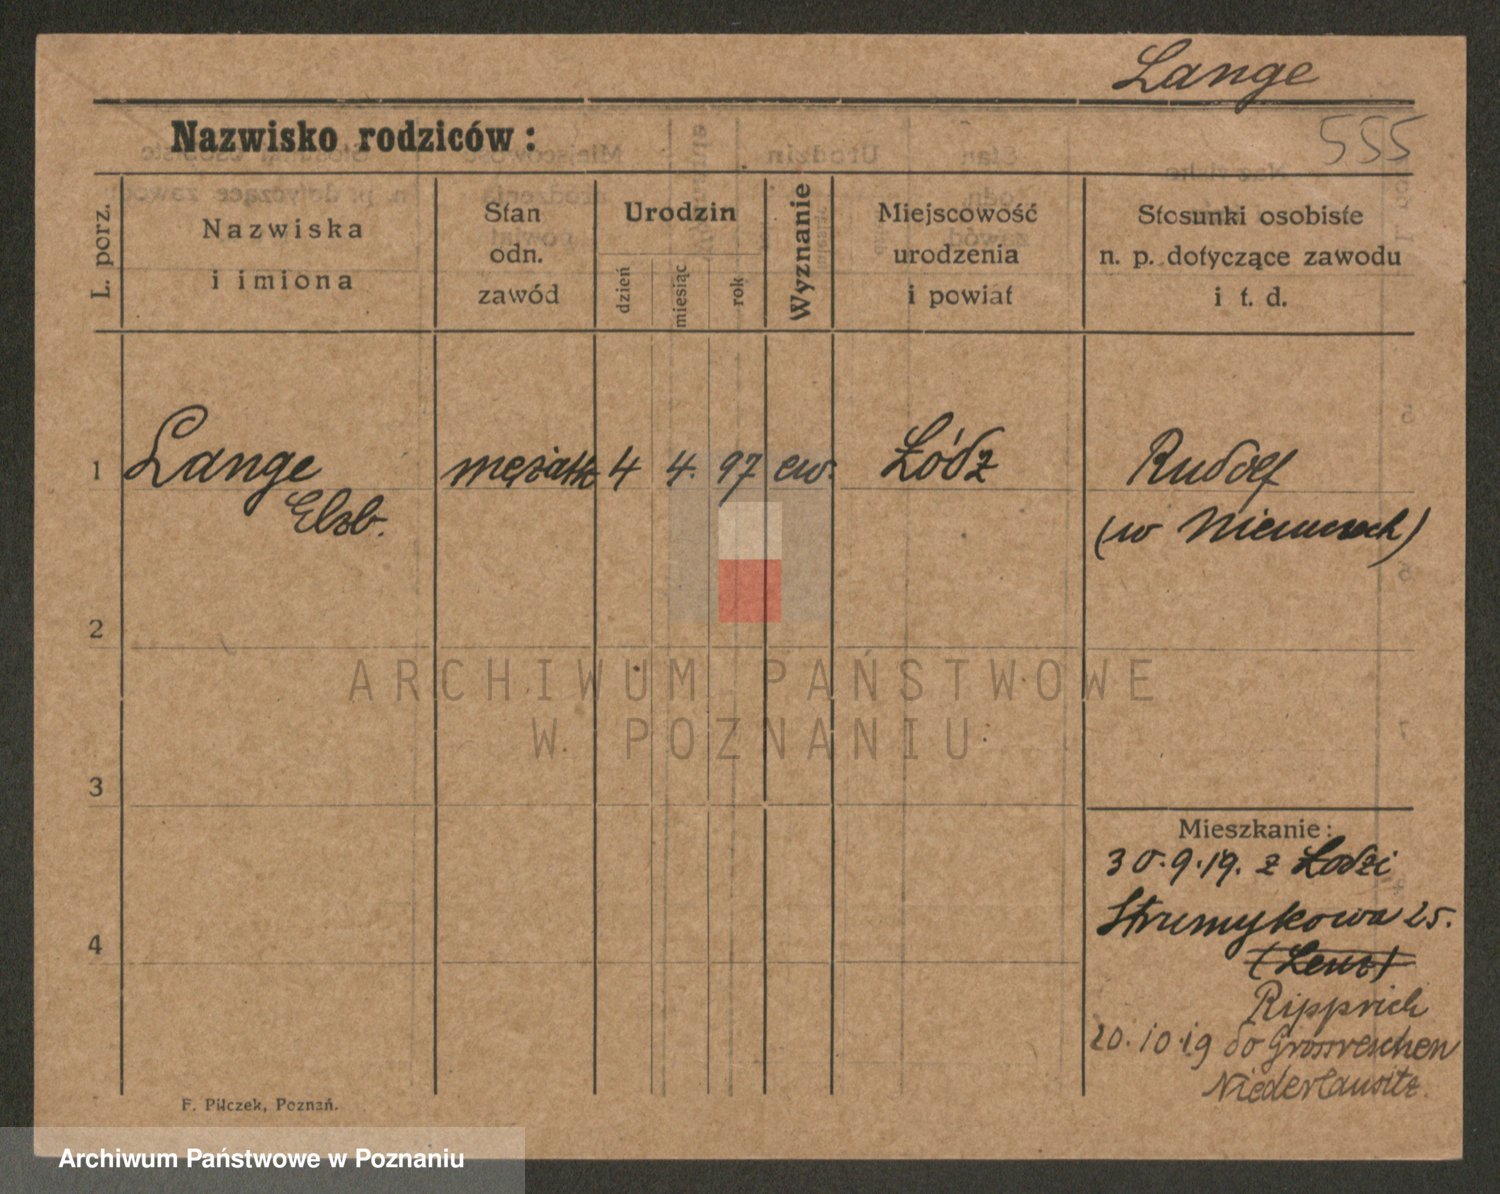 Lange
Nazwisko rodziców:
555
L. porz.
Nazwiska
i imiona
Stan
odn.
zawód
Urodzin
dzień
miesiąc
rok
Wyznanie
Miejscowość
urodzenia
i powiat
Stosunki osobiste
n. p. dotyczące zawodu
i t. d.
1 Lange mężatk 4 4. 97 ew. Łódz Rudolf
Elsb. (w Niemczech)
2
3
4
ARCHIWUM PAŃSTWOWE
W POZNANIU
Mieszkanie:
30.9.19. z Łodzi
Strumykowa 25.
(Lenz)
Ripprich
20.10.19 do Grossreschen
Niederlausitz.
F. Pilczek, Poznań.
Archiwum Państwowe w Poznaniu